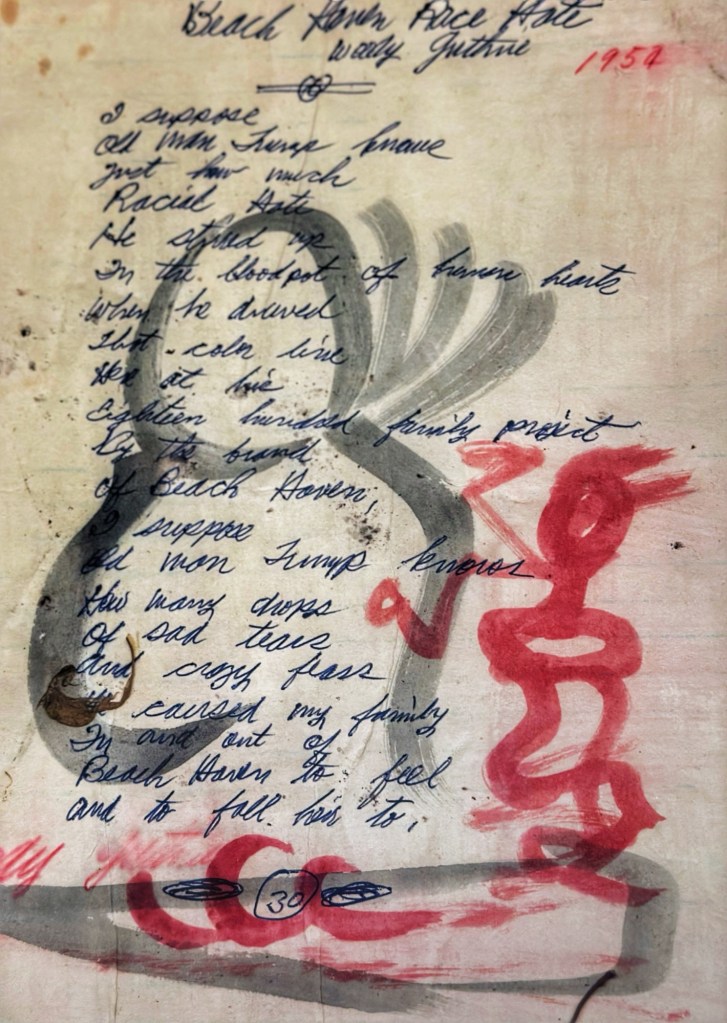 Beach Haven Race Hate
Woody Guthrie
1954
I suppose
Old man Trump knows
Just how much
Racial Hate
He stirred up
In the bloodpot of human hearts
When he drawed
That color line
Here at his
Eighteen hundred family project
By the brand
of Beach Haven,
I suppose
Old man Trump knows
How many drops
Of sad tears
And crazy fears
caused my family
In and out of
Beach Haven to feel
and to fall heir to,
30